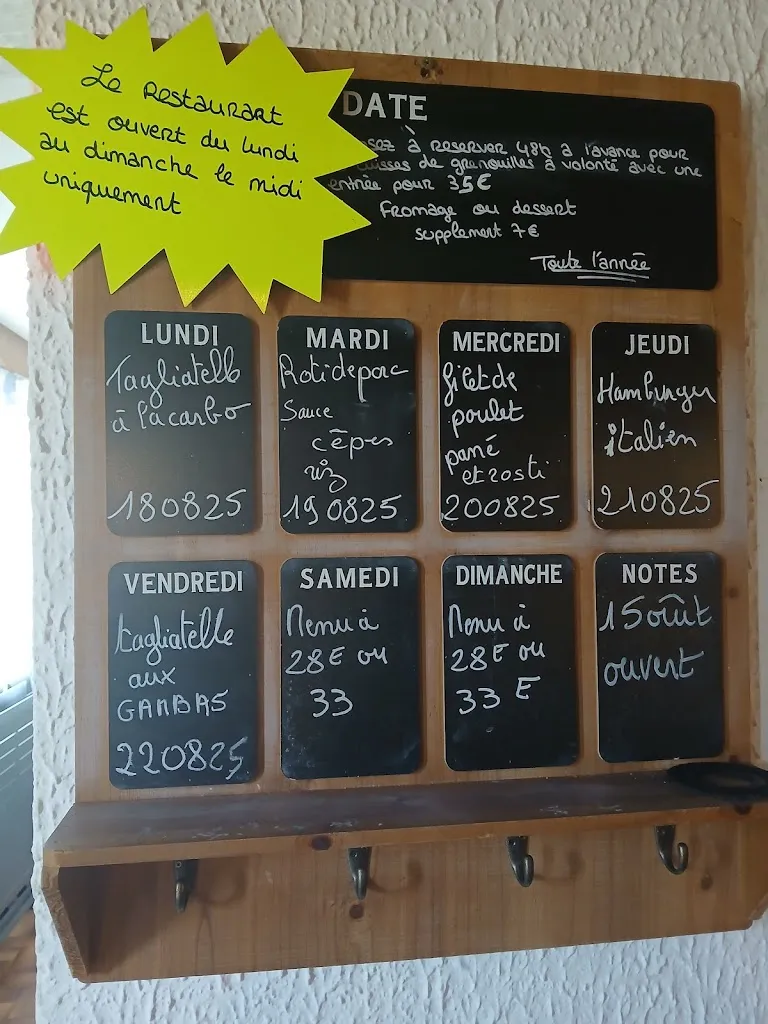 Le Restaurart
est ouvert du lundi
au dimanche le midi
uniquement
DATE
à reserver 48h a l'avance pour
de grenouilles à volonté avec une
entrée pour 35€
Fromage ou dessert
supplement 7€
Toute l'année
LUNDI
Tagliatelle
à la carbo
180825
MARDI
Roti de porc
Sauce
cêpes
riz
190825
MERCREDI
filet de
poulet
pané
et rosti
200825
JEUDI
Hamburger
italien
210825
VENDREDI
tagliatelle
aux
GAMBAS
220825
SAMEDI
Menu à
28€ ou
33
DIMANCHE
Menu à
28€ ou
33 €
NOTES
15 oût
ouvert